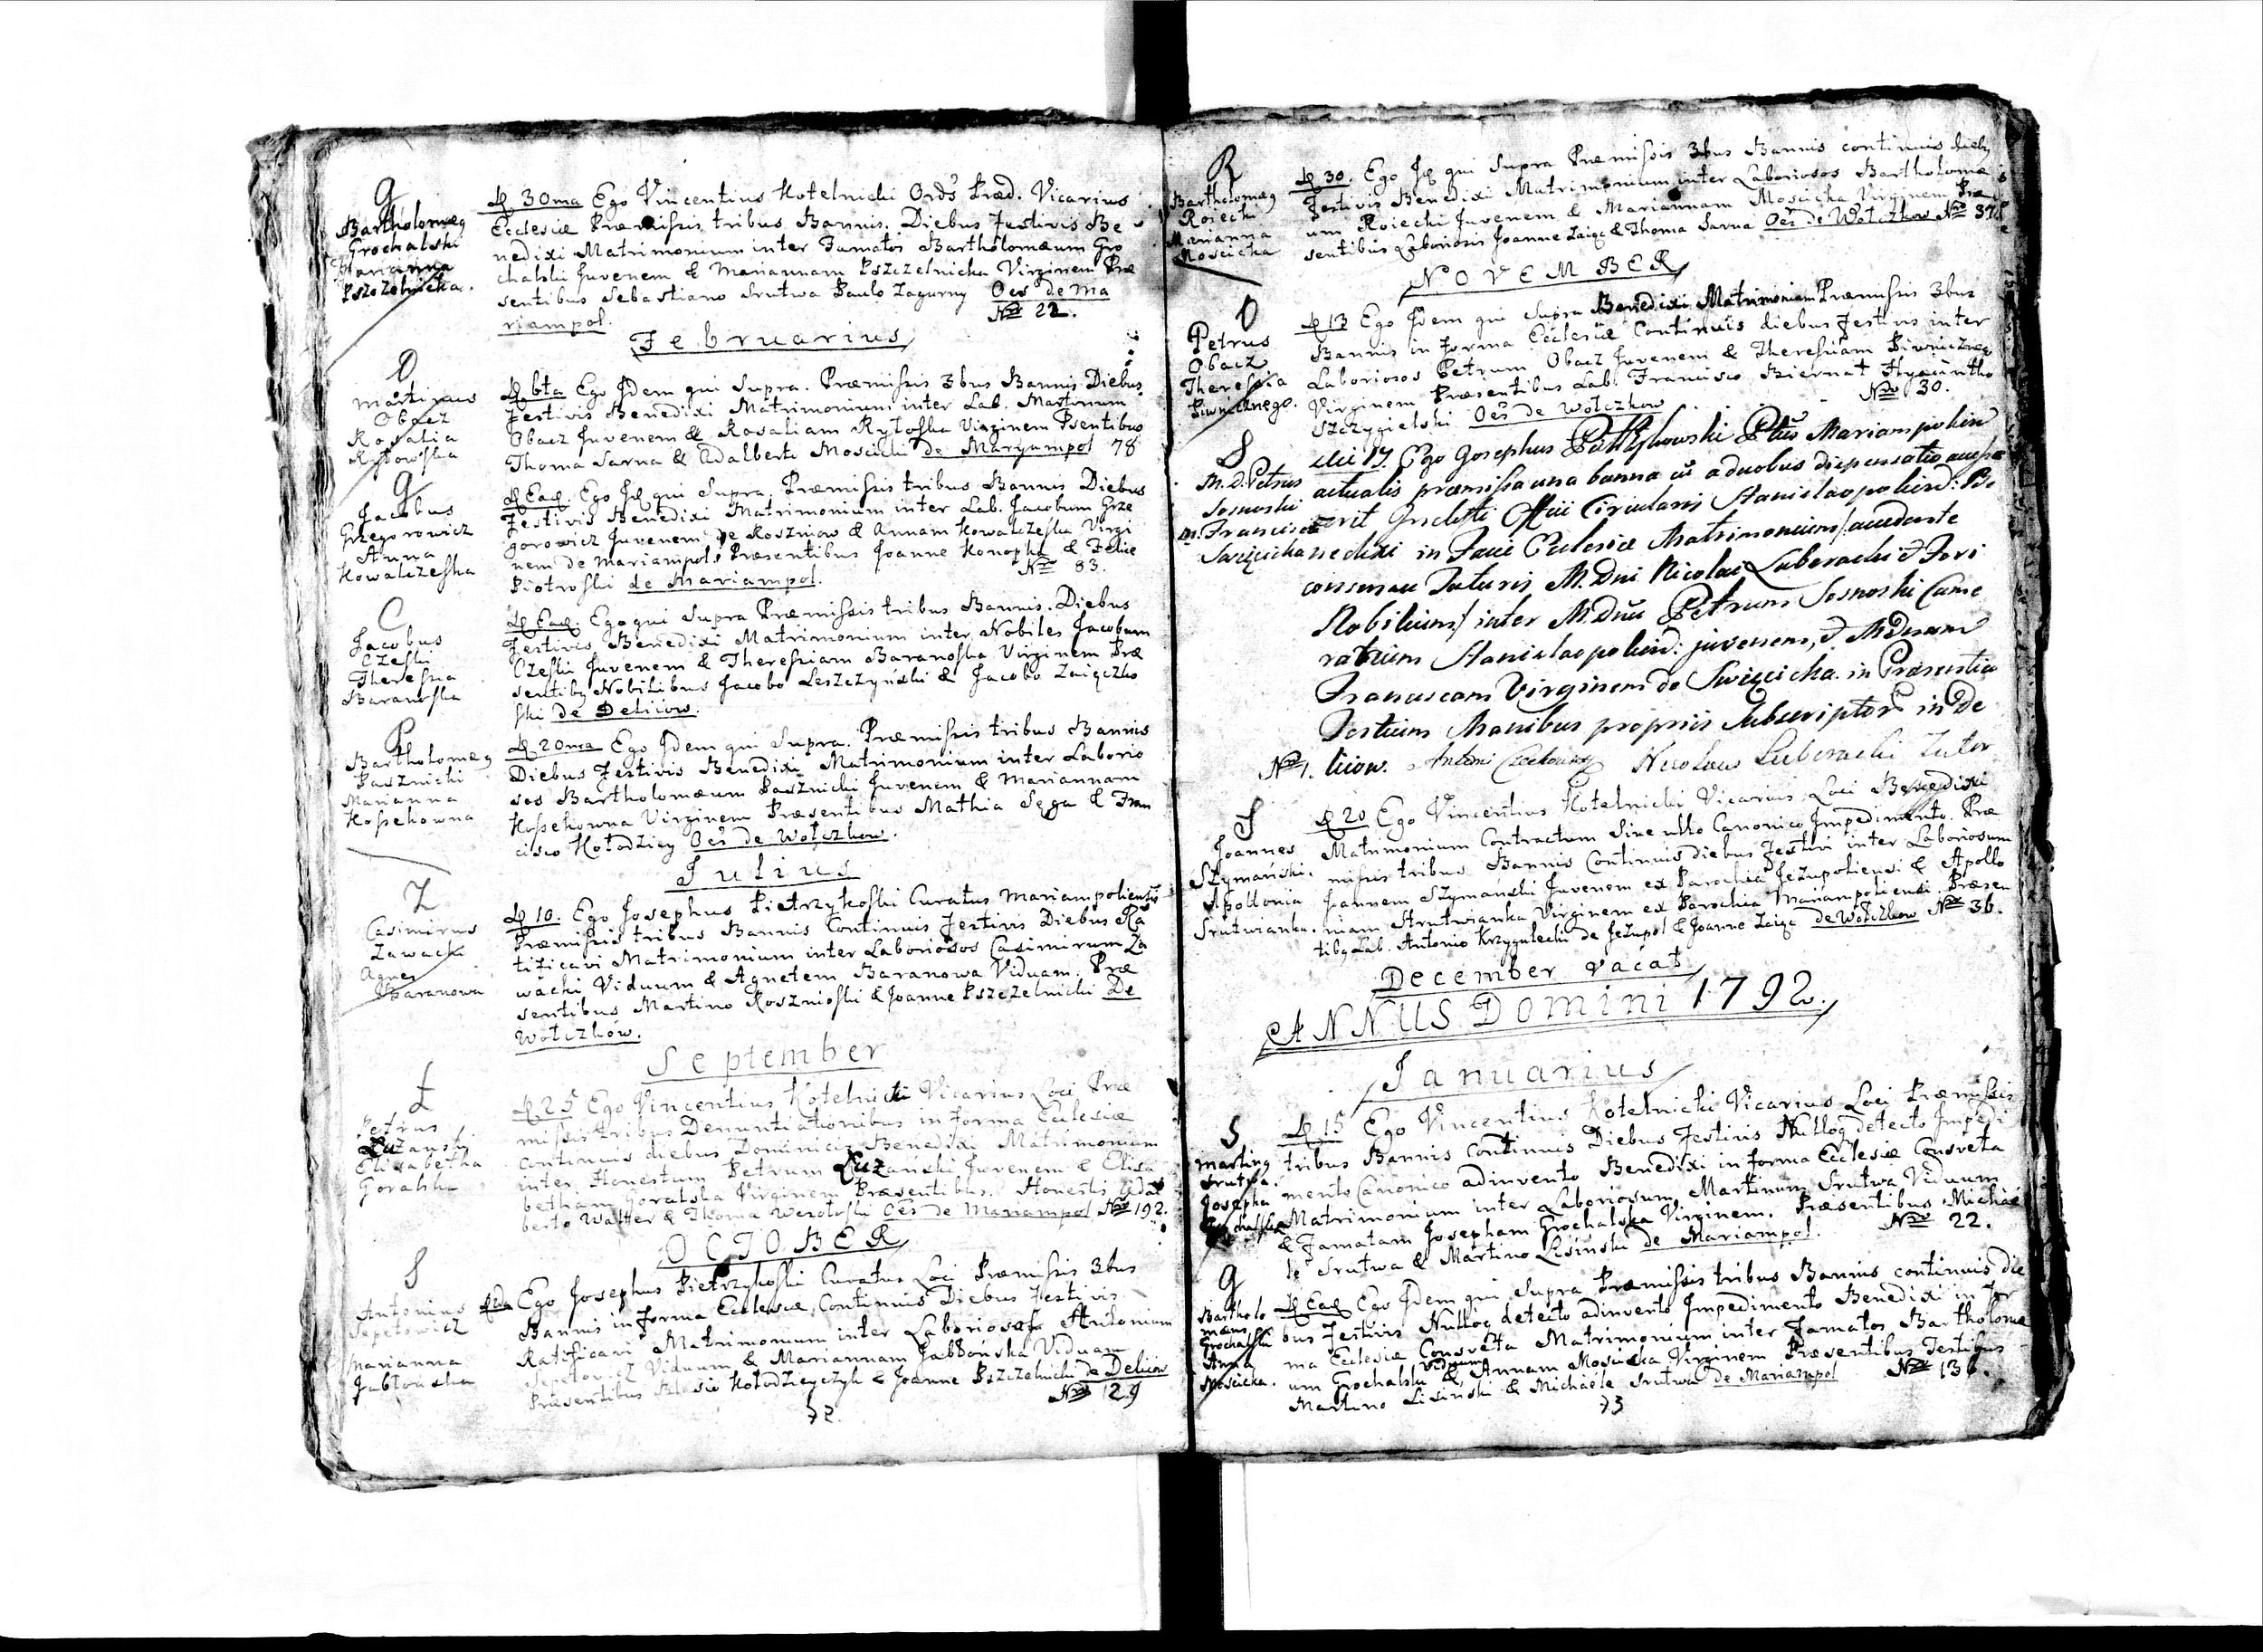 G
Bartholomeg
Grochalski
Marianna
Pszczelnicka.
D 30ma Ego Vincentius Kotelnicki Ords Præd. Vicarius
Ecclesiæ Præmissis tribus Bannis. Diebus Festivis Be
nedixi Matrimonium inter Famatos Bartholomæum Gro
chalski Juvenem & Mariannam Pszczelnicka Virginem Præ
sentibus Sebastiano Srutwa Paulo Zagurny Oes de Ma
riampol.
Nro 22.
Februarius
O
Martinus
Obacz
Rosalia
Rytowska
D 6ta Ego Idem qui Supra. Præmissis 3bus Bannis. Diebus
Festivis Benedixi Matrimonium inter Lab. Martinum
Obacz Juvenem & Rosaliam Rytoska Virginem Psentibus
Thoma Sarna & Adalberto Moscicki de Maryampol 78
G
Jacobus
Grzegorowicz
Anna
Kowalczeska
D Ead. Ego Id qui Supra. Præmissis tribus Bannis Diebus
Festivis Benedixi Matrimonium inter Lab. Jacobum Grze
gorowicz Juvenem de Koszniow & Annam Kowalczeska Virgi
nem de Mariampol. Præsentibus Joanne Konopka & Felice
Piotroski de Mariampol.
Nro 83.
C
Jacobus
Czeski
Theresia
Baranoska
D Ead. Ego qui Supra Præmissis tribus Bannis. Diebus
Festivis Benedixi Matrimonium inter Nobiles Jacobum
Czeski Juvenem & Theresiam Baranoska Virginem Præ
sentibg Nobilibus Jacobo Leszczynski & Jacobo Zaięczko
ski de Deliiow.
P
Bartholomeg
Pasznicki
Marianna
Kossekowna
D 20ma Ego Idem qui Supra. Præmissis tribus Bannis
Diebus Festivis Benedixi Matrimonium inter Laborio
sos Bartholomæum Pasznicki Juvenem & Mariannam
Kossekowna Virginem Præsentibus Mathia Sęga & Fran
cisco Kołodzicy Oes de Wołczkow.
Julius
Z
Casimirus
Zawacki
Agnes
Baranowa
D 10. Ego Josephus Pietrzykoski Curatus Mariampoliensis
Præmissis tribus Bannis Continuis Festivis Diebus Ra
tificavi Matrimonium inter Laboriosos Casimirum Za
wacki Viduum & Agnetem Baranowa Viduam. Præ
sentibus Martino Kosznioski & Joanne Pszczelnicki De
Wołczków.
September
Ł
Petrus
Łużanski
Elisabetha
Goralska
D 25 Ego Vincentius Kotelnicki Vicarius Loci Præ
missis tribus Denuntiationibus in forma Ecclesiæ
continuis diebus Dominicis Benedixi Matrimonium
inter Honestum Petrum Łużański Juvenem & Elisa
betham Goralska Virginem Præsentibus. Honestis Adal
berto Walter & Thoma Werotoski Oes de Mariampol Nro 192.
OCTOBER
S
Antonius
Sepetowicz
Marianna
Jabłońska
D 2da Ego Josephus Pietrzykoski Curatus Loci Præmissis 3bus
Bannis in forma Ecclesiæ, Continuis Diebus Festivis
Ratificavi Matrimonium inter Laboriosos Antonium
Sepetowicz Viduum & Mariannam Jabłońska Viduam
Præsentibus Blasio Kołodzieyczyk & Joanne Pszczelnicki de Deliiow
Nro 129
72.
R
Bartholomeg
Roiecki
Marianna
Moscicka
D 30. Ego Id qui Supra Præmissis 3bus Bannis continuis diebg
Festivis Benedixi Matrimonium inter Laboriosos Bartholomæ
um Roiecki Juvenem & Mariannam Moscicka Virginem Præ
sentibus Laboriosis Joanne Zaiąc & Thoma Sarna Oes de Wołczkow Nro 37.
NOVEMBER
O
Petrus
Obacz
Theressia
Piwnicznego.
D 13 Ego Idem qui Supra Benedixi Matrimonium Præmissis 3bus
Bannis in forma Ecclesiæ Continuis diebus Festivis inter
Laboriosos Petrum Obacz Juvenem & Theresiam Piwnicznego
Virginem Præsentibus Lab. Francisco Biernat Hyacintho
Szczygielski Oes de Wołczkow
Nro 30.
S
M. D. Petrus
Sosnoski
M. Francisca
Swięcicka
die 17. Ego Josephus Pietrzykowski Ptus Mariampolien
actualis præmissa una banna cū a duobus dispensatio accesse
rit Inclyti Offii Circularis Stanislaopolien: Be
nedixi in Facie Ecclesiæ Matrimonium/: accedente
consensu Tutoris M. Dni Nicolai Luberacki & Fori
Nobilium:/ inter M. Dnū Petrum Sosnoski Came
rarium Stanislaopolien: juvenem, & M. Dnam
Franciscam Virginem de Swięcicka. in Præsentia
Testium Manibus propriis Subscriptorū in De
liiow. Antoni Nicolaus Luberacki Tutor
Nro 1.
S
Joannes
Szymański.
Apollonia
Srutwianka.
D 20 Ego Vincentius Kotelnicki Vicarius Loci Benedixi
Matrimonium Contractum Sine ullo Canonico Impedimento. Præ
missis tribus Bannis Continuis diebus Festivi inter Laboriosum
Joannem Szymanski Juvenem ex Parochia Jezupoliensi & Apollo
niam Strutwianka Virginem ex Parochia Mariampoliensi. Præsen
tibg Lab. Antonio Krzygulecki de Jezupol & Joanne Zaiąc de Wołczkow Nro 36.
December vacat
ANNUS Domini 1792.
Januarius
S
Marting
Srutwa.
Josepha
Grochalska
D 15 Ego Vincentius Kotelnicki Vicarius Loci Præmissis
tribus Bannis Continuis Diebus Festivis Nulloq detecto Impedi
mento Canonico adinvento Benedixi in forma Ecclesiæ Consveta
Matrimonium inter Laboriosum Martinum Srutwa Viduum
& Famatam Josepham Grochalska Virginem. Præsentibus Michae
le Srutwa & Martino Lisinski de Mariampol.
Nro 22.
G
Bartholo
mæus
Grochalski
Anna
Moscicka.
D Ead Ego Idem qui Supra Præmissis tribus Bannis continuis die
bus Festivis Nulloq detecto adinvento Impedimento Benedixi in for
ma Ecclesiæ Consveta Matrimonium inter Famatos Bartholomæ
um Grochalski viduum & Annam Moscicka Virginem Præsentibus Testibus
Martino Lisinski & Michaele Srutwa de Mariampol
Nro 136.
73